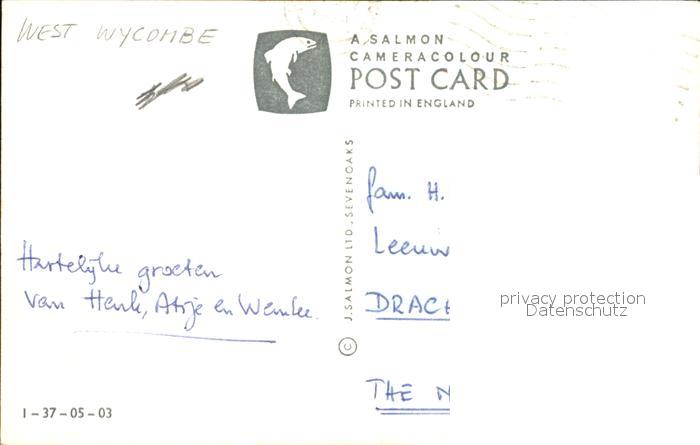 WEST WYCOMBE
A SALMON
CAMERACOLOUR
POST CARD
PRINTED IN ENGLAND
© J. SALMON LTD., SEVENOAKS
fam. H.
Leeuw
DRACH
THE N
Hartelijke groeten
van Henk, Atije en Wemke.
privacy protection
Datenschutz
1-37-05-03